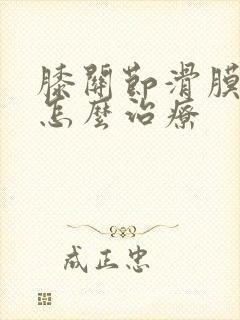 膝關節滑膜
怎麼治療
成正忠